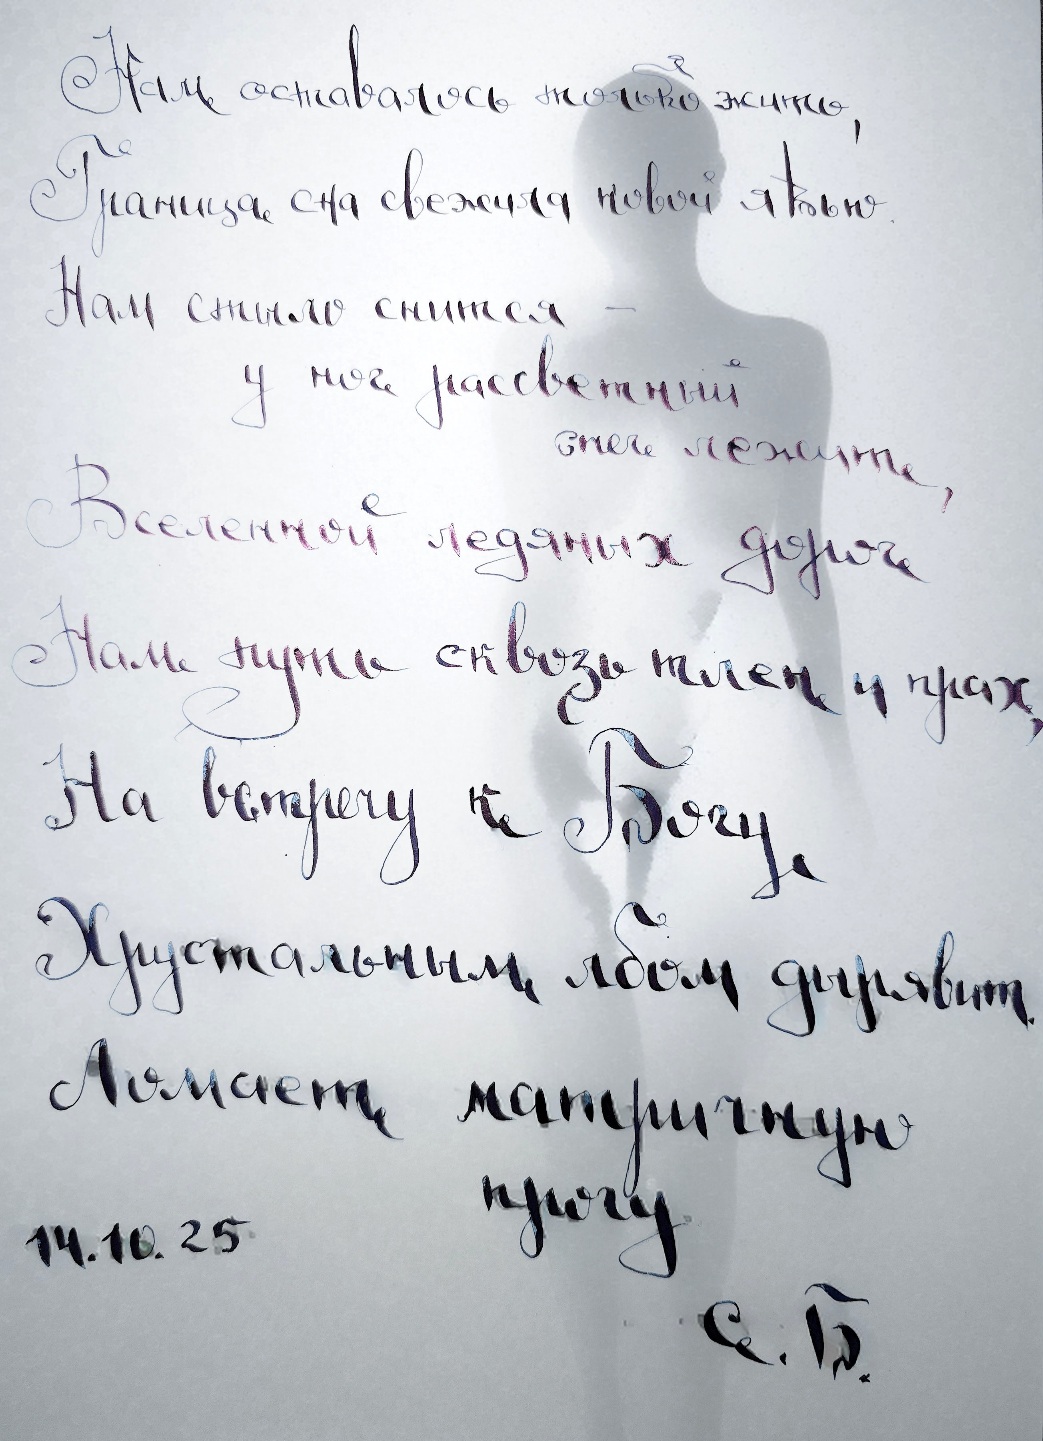 Нам оставалось только жить,
Граница сна свежила новой явью.
Нам стыло снится –
у ног рассветный
снег лежит,
Вселенной ледяных дорог
Нам путь сквозь тлен и прах,
На встречу к Богу,
Хрустальным лбом дырявит.
Ломает матричную
прогу
14.10.25
С. Б.